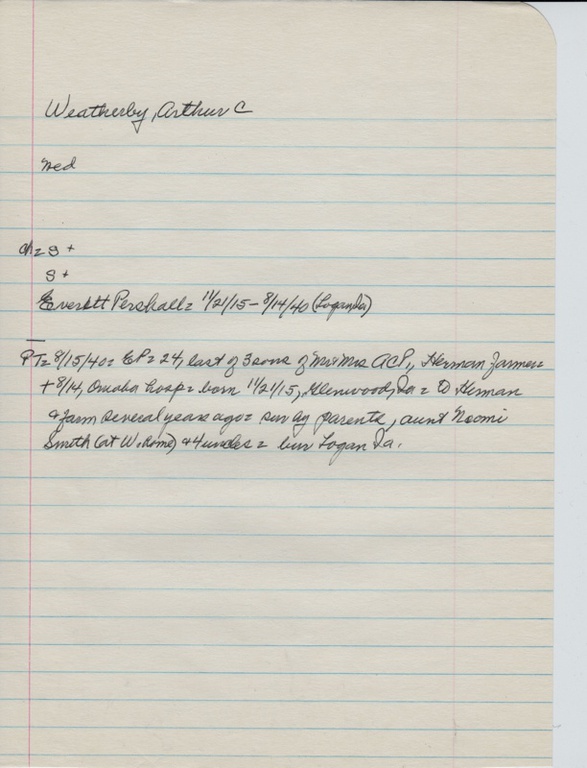 Weatherby, Arthur C
med
ch = S +
S +
Everett Pershall = 11/21/15 - 8/14/40 (Logan Ia)
PT = 8/15/40 = EP = 24, last of 3 sons of Mr + Mrs ACP,, Herman farmer =
+ 8/14, Omaha hosp = born 11/21/15, Glenwood, Ia = to Herman
& farm several years ago = surv by parents, aunt Naomi
Smith (at W. home) & 4 uncles = bur Logan Ia.